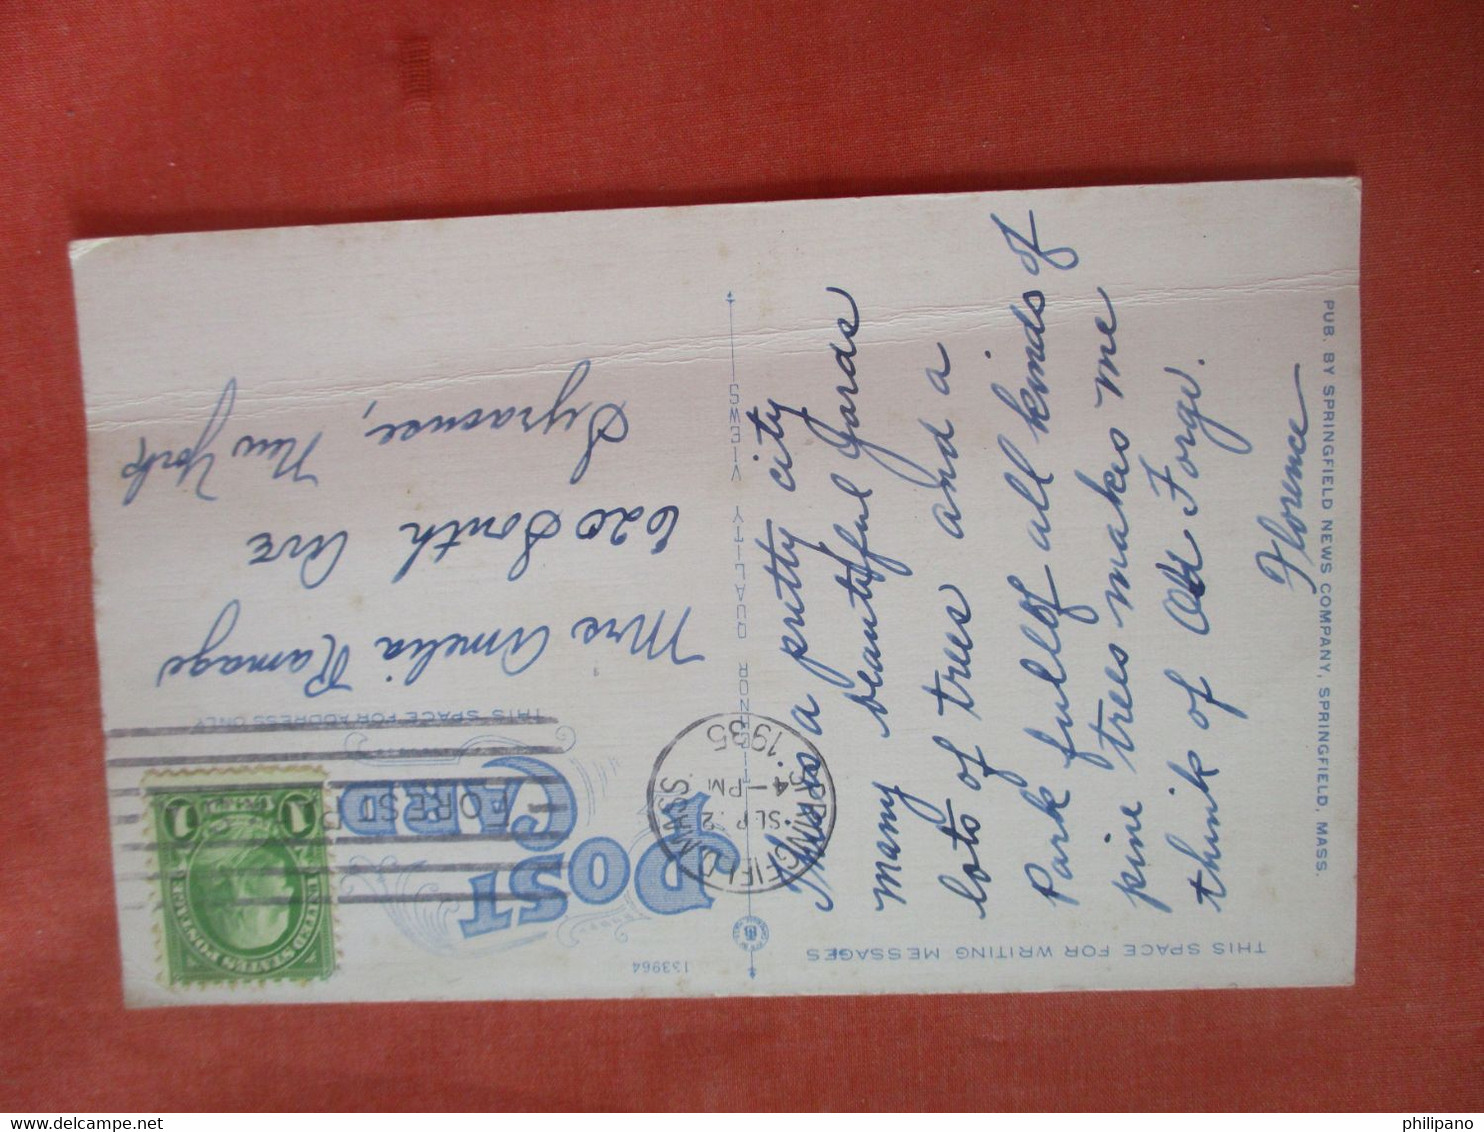 THIS SPACE FOR WRITING MESSAGES
This is a pretty city
many beautiful yards
lots of trees and a
Park full of all kinds of
pine trees makes me
think of Old Forge.
Florence
PUB. BY SPRINGFIELD NEWS COMPANY, SPRINGFIELD, MASS.
TICHNOR QUALITY VIEWS
133964
POST CARD
THIS SPACE FOR ADDRESS ONLY
SPRINGFIELD, MASS.
SEP 2
4 - PM
1935
FOREST
UNITED STATES POSTAGE
1 1
Mrs Amelia Ramage
620 South Ave
Syracuse,
New York
delcampe.net
philipano